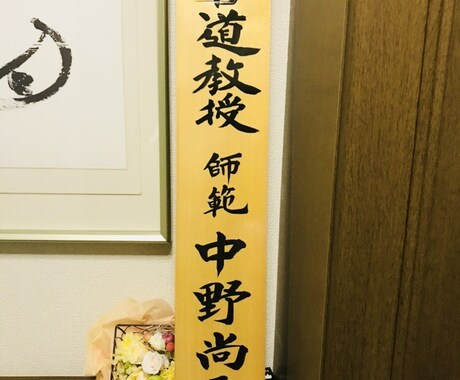 道教授 師範 中野尚